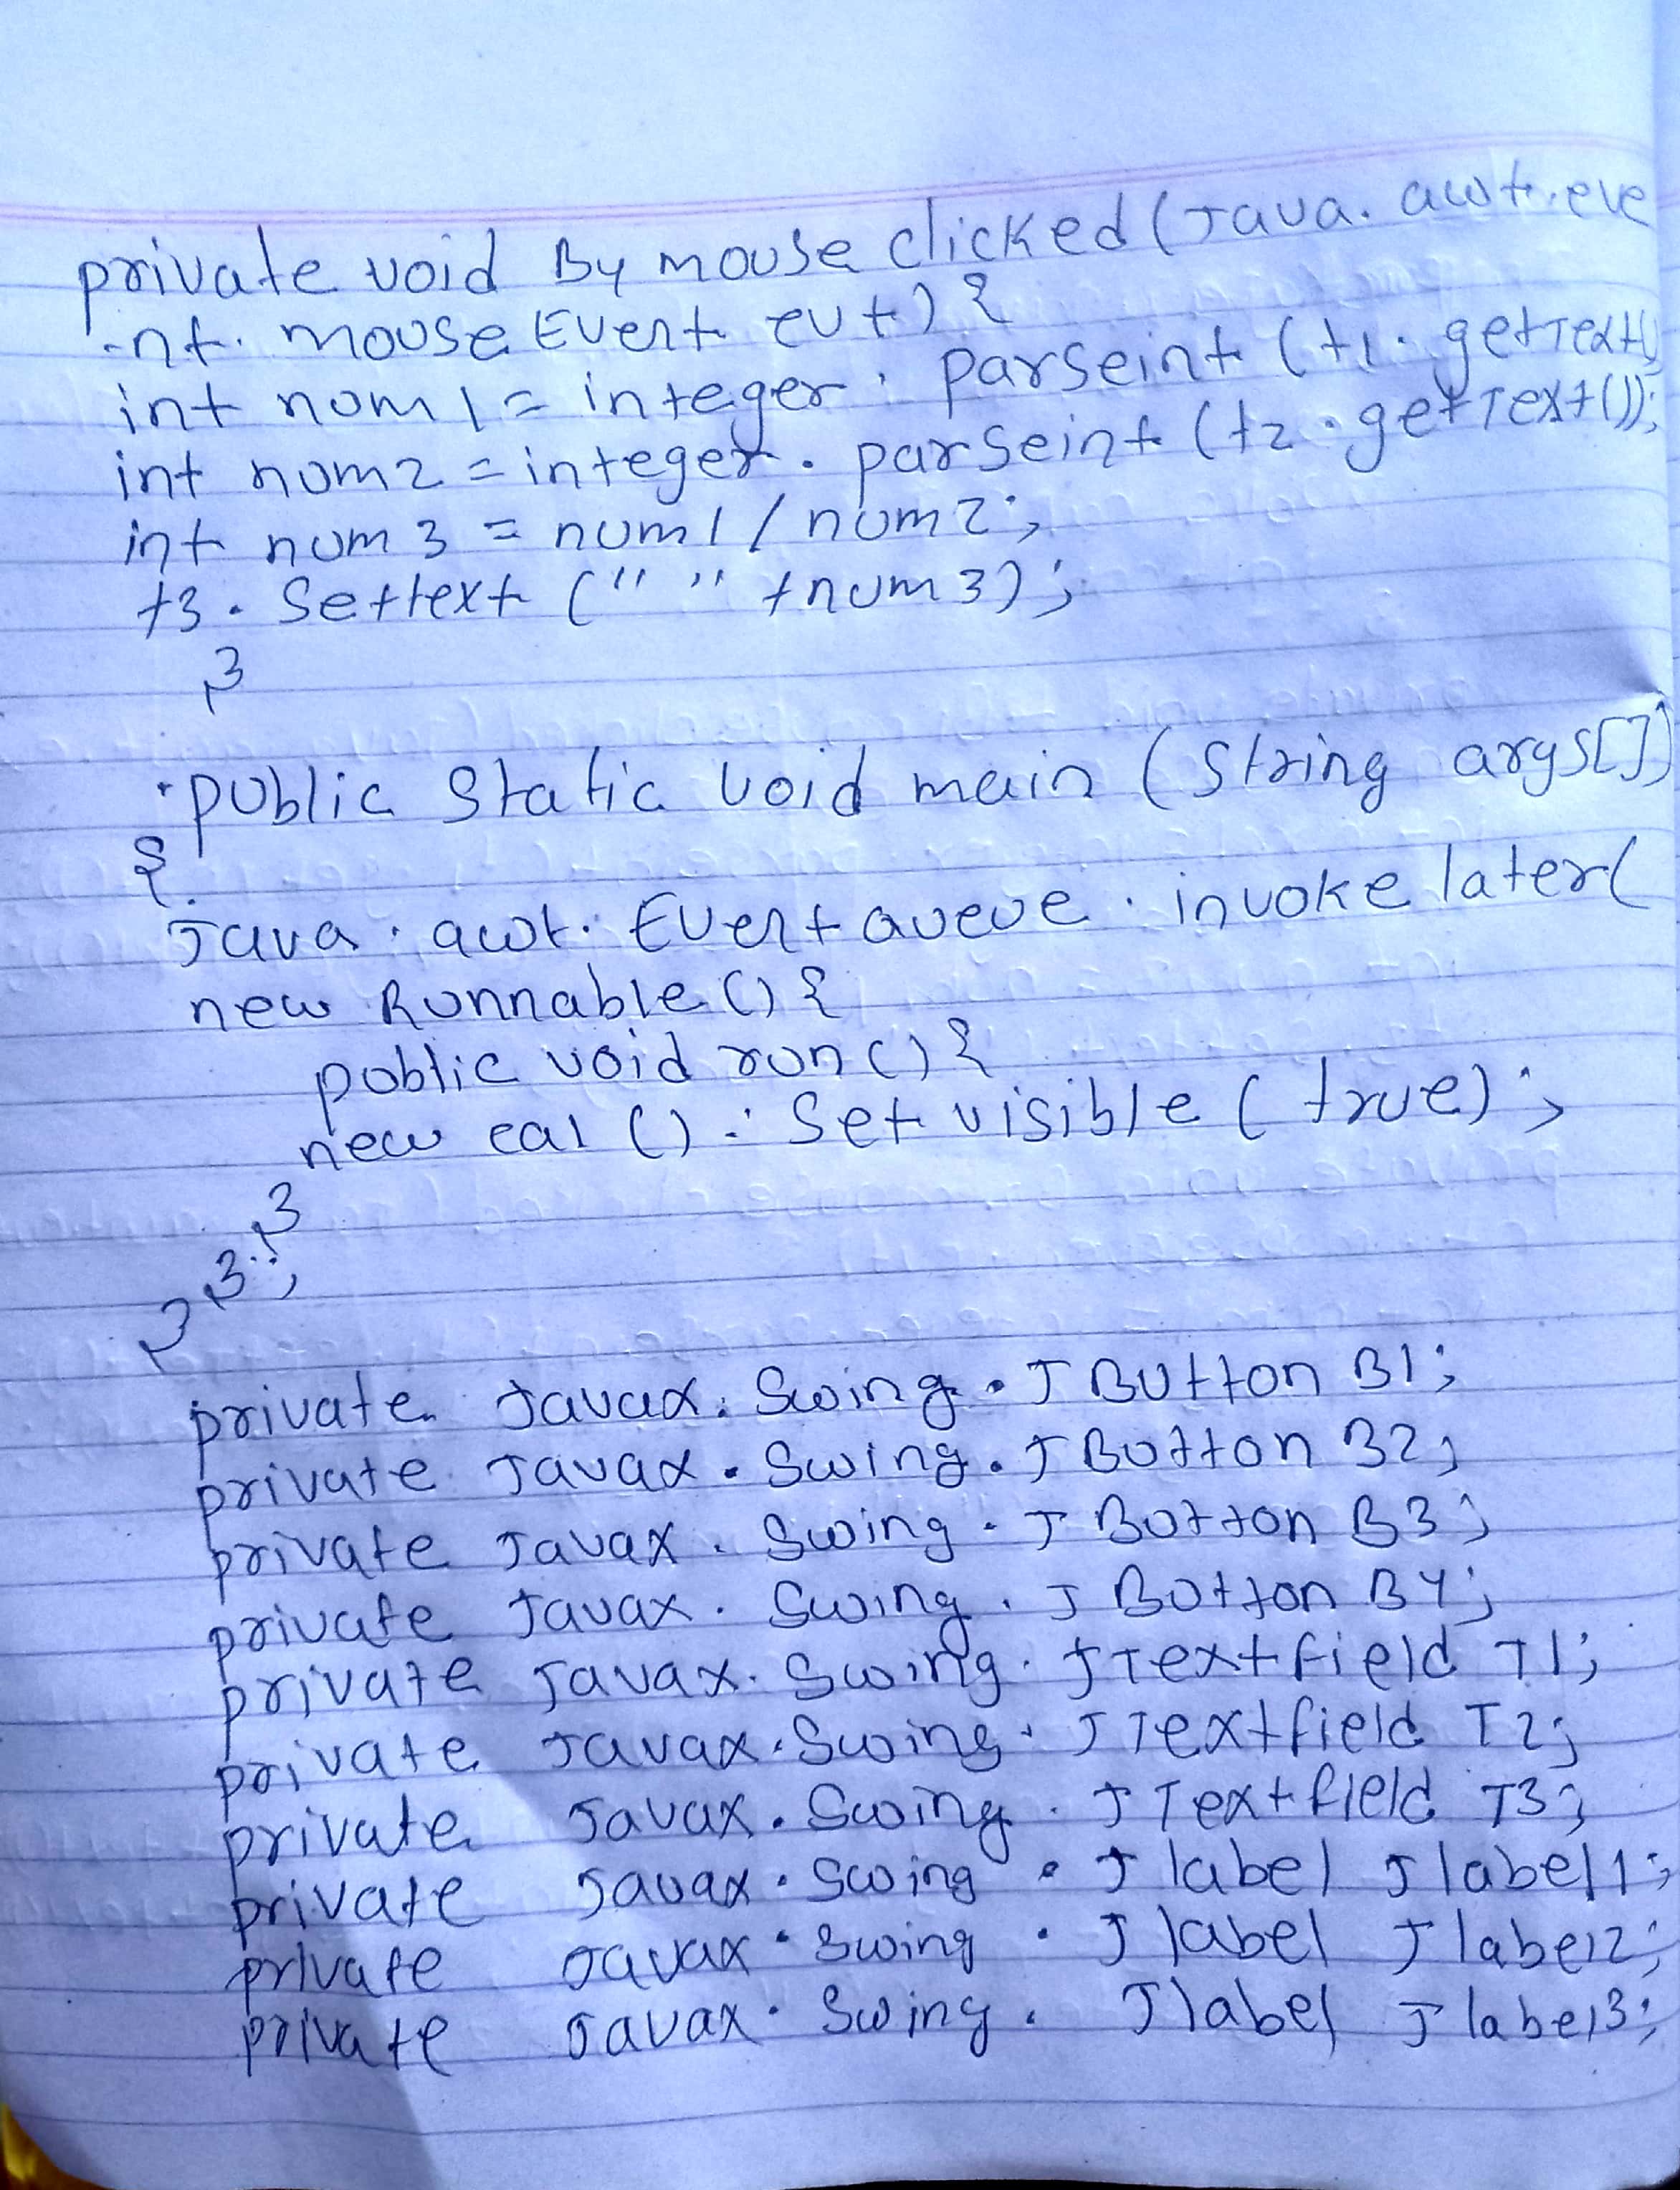 private void By mouse clicked (Java. awt. eve
nt. mouse Event evt) {
int num 1 = integer . parseint (t1. getText()
int num2 = integer. parseint (t2 . getText());
int num 3 = num1 / num2;
t3. Settext (" " +num3);
}
public static void main (String args[])
{
Java . awt. Event queue . invoke later(
new Runnable () {
public void run () {
new cal () . Set visible ( true) ;
}
};
}
private Javax. Swing . J BUtton B1;
private Javax . Swing . J Button B2;
private Javax . Swing . J Button B3;
private Javax . Swing . J Button B4;
private Javax. Swing . JText field T1;
private Javax. Swing . J Textfield T2;
private Javax. Swing . J Text field T3;
private Javax . Swing . J label Jlabel1;
private Javax . Swing . J label J label2;
private Javax . Swing . Jlabel J label3;